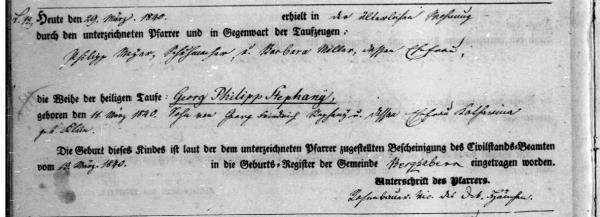 Heute den 29. März. 1840. erhielt in der älterlichen Wohnung
durch den unterzeichneten Pfarrer und in Gegenwart der Taufzeugen:
Philipp Meyer, u. Barbara Müller, dessen Ehefrau,
die Weihe der heiligen Taufe: Georg Philipp Stephany,
geboren den 11. März 1840. Sohn von Georg Friedrich Stephany u. dessen Ehefrau Katharina
geb.
Die Geburt dieses Kindes ist laut der dem unterzeichneten Pfarrer zugestellten Bescheinigung des Civilstands-Beamten
vom 13. März. 1840. in die Geburts-Register der Gemeinde Bergzabern eingetragen worden.
Unterschrift des Pfarrers.
Vic. des Dek.